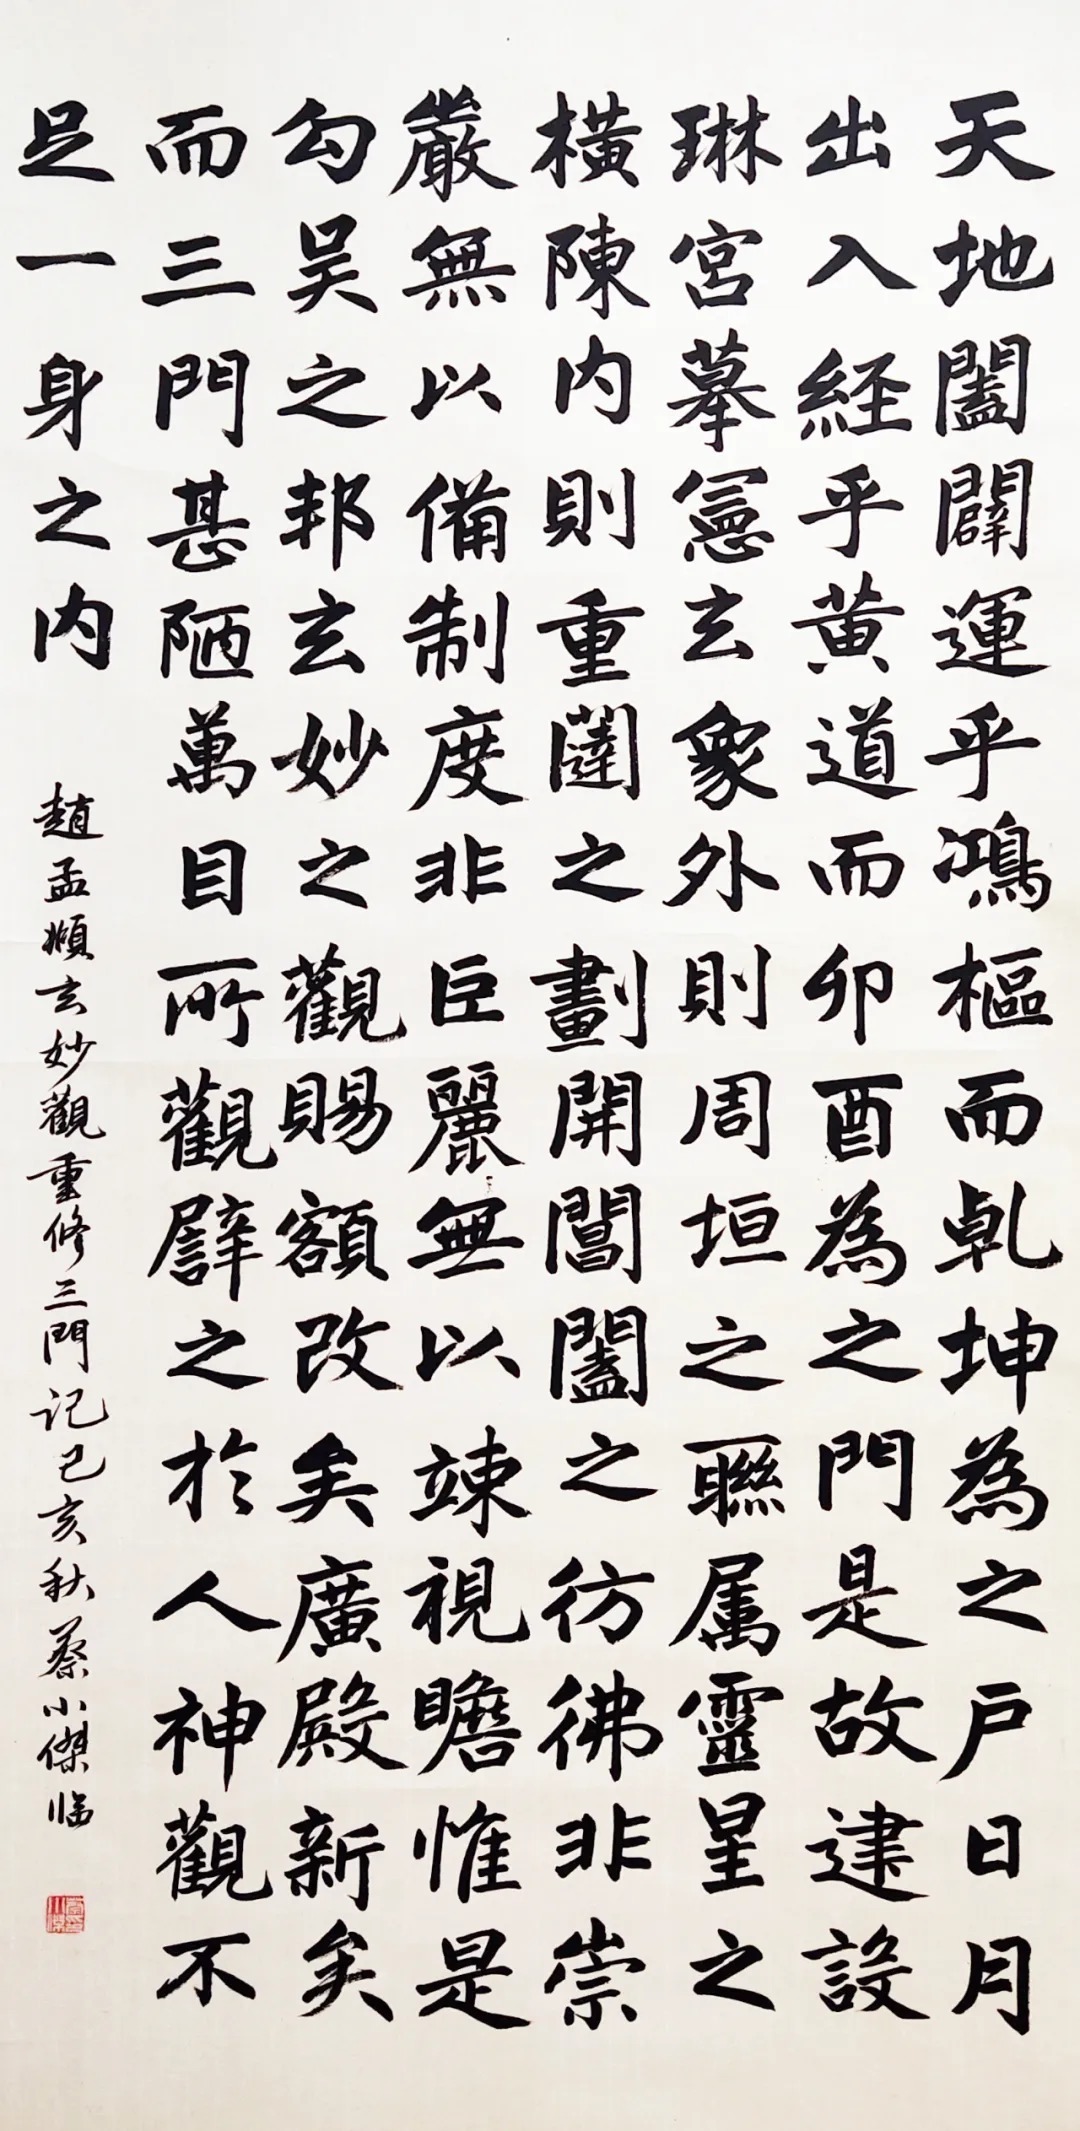 天地闔闢運乎鴻樞而乹坤為之戶日月
出入經乎黄道而卯酉為之門是故建設
琳宮摹憲玄象外則周垣之聯属靈星之
橫陳内則重闥之劃開閶闔之彷彿非崇
嚴無以備制度非巨麗無以竦視瞻惟是
勾吴之邦玄妙之觀賜額改矣廣殿新矣
而三門甚陋萬目所觀譬之於人神觀不
足一身之内
趙孟頫玄妙觀重修三門记己亥秋蔡小傑临